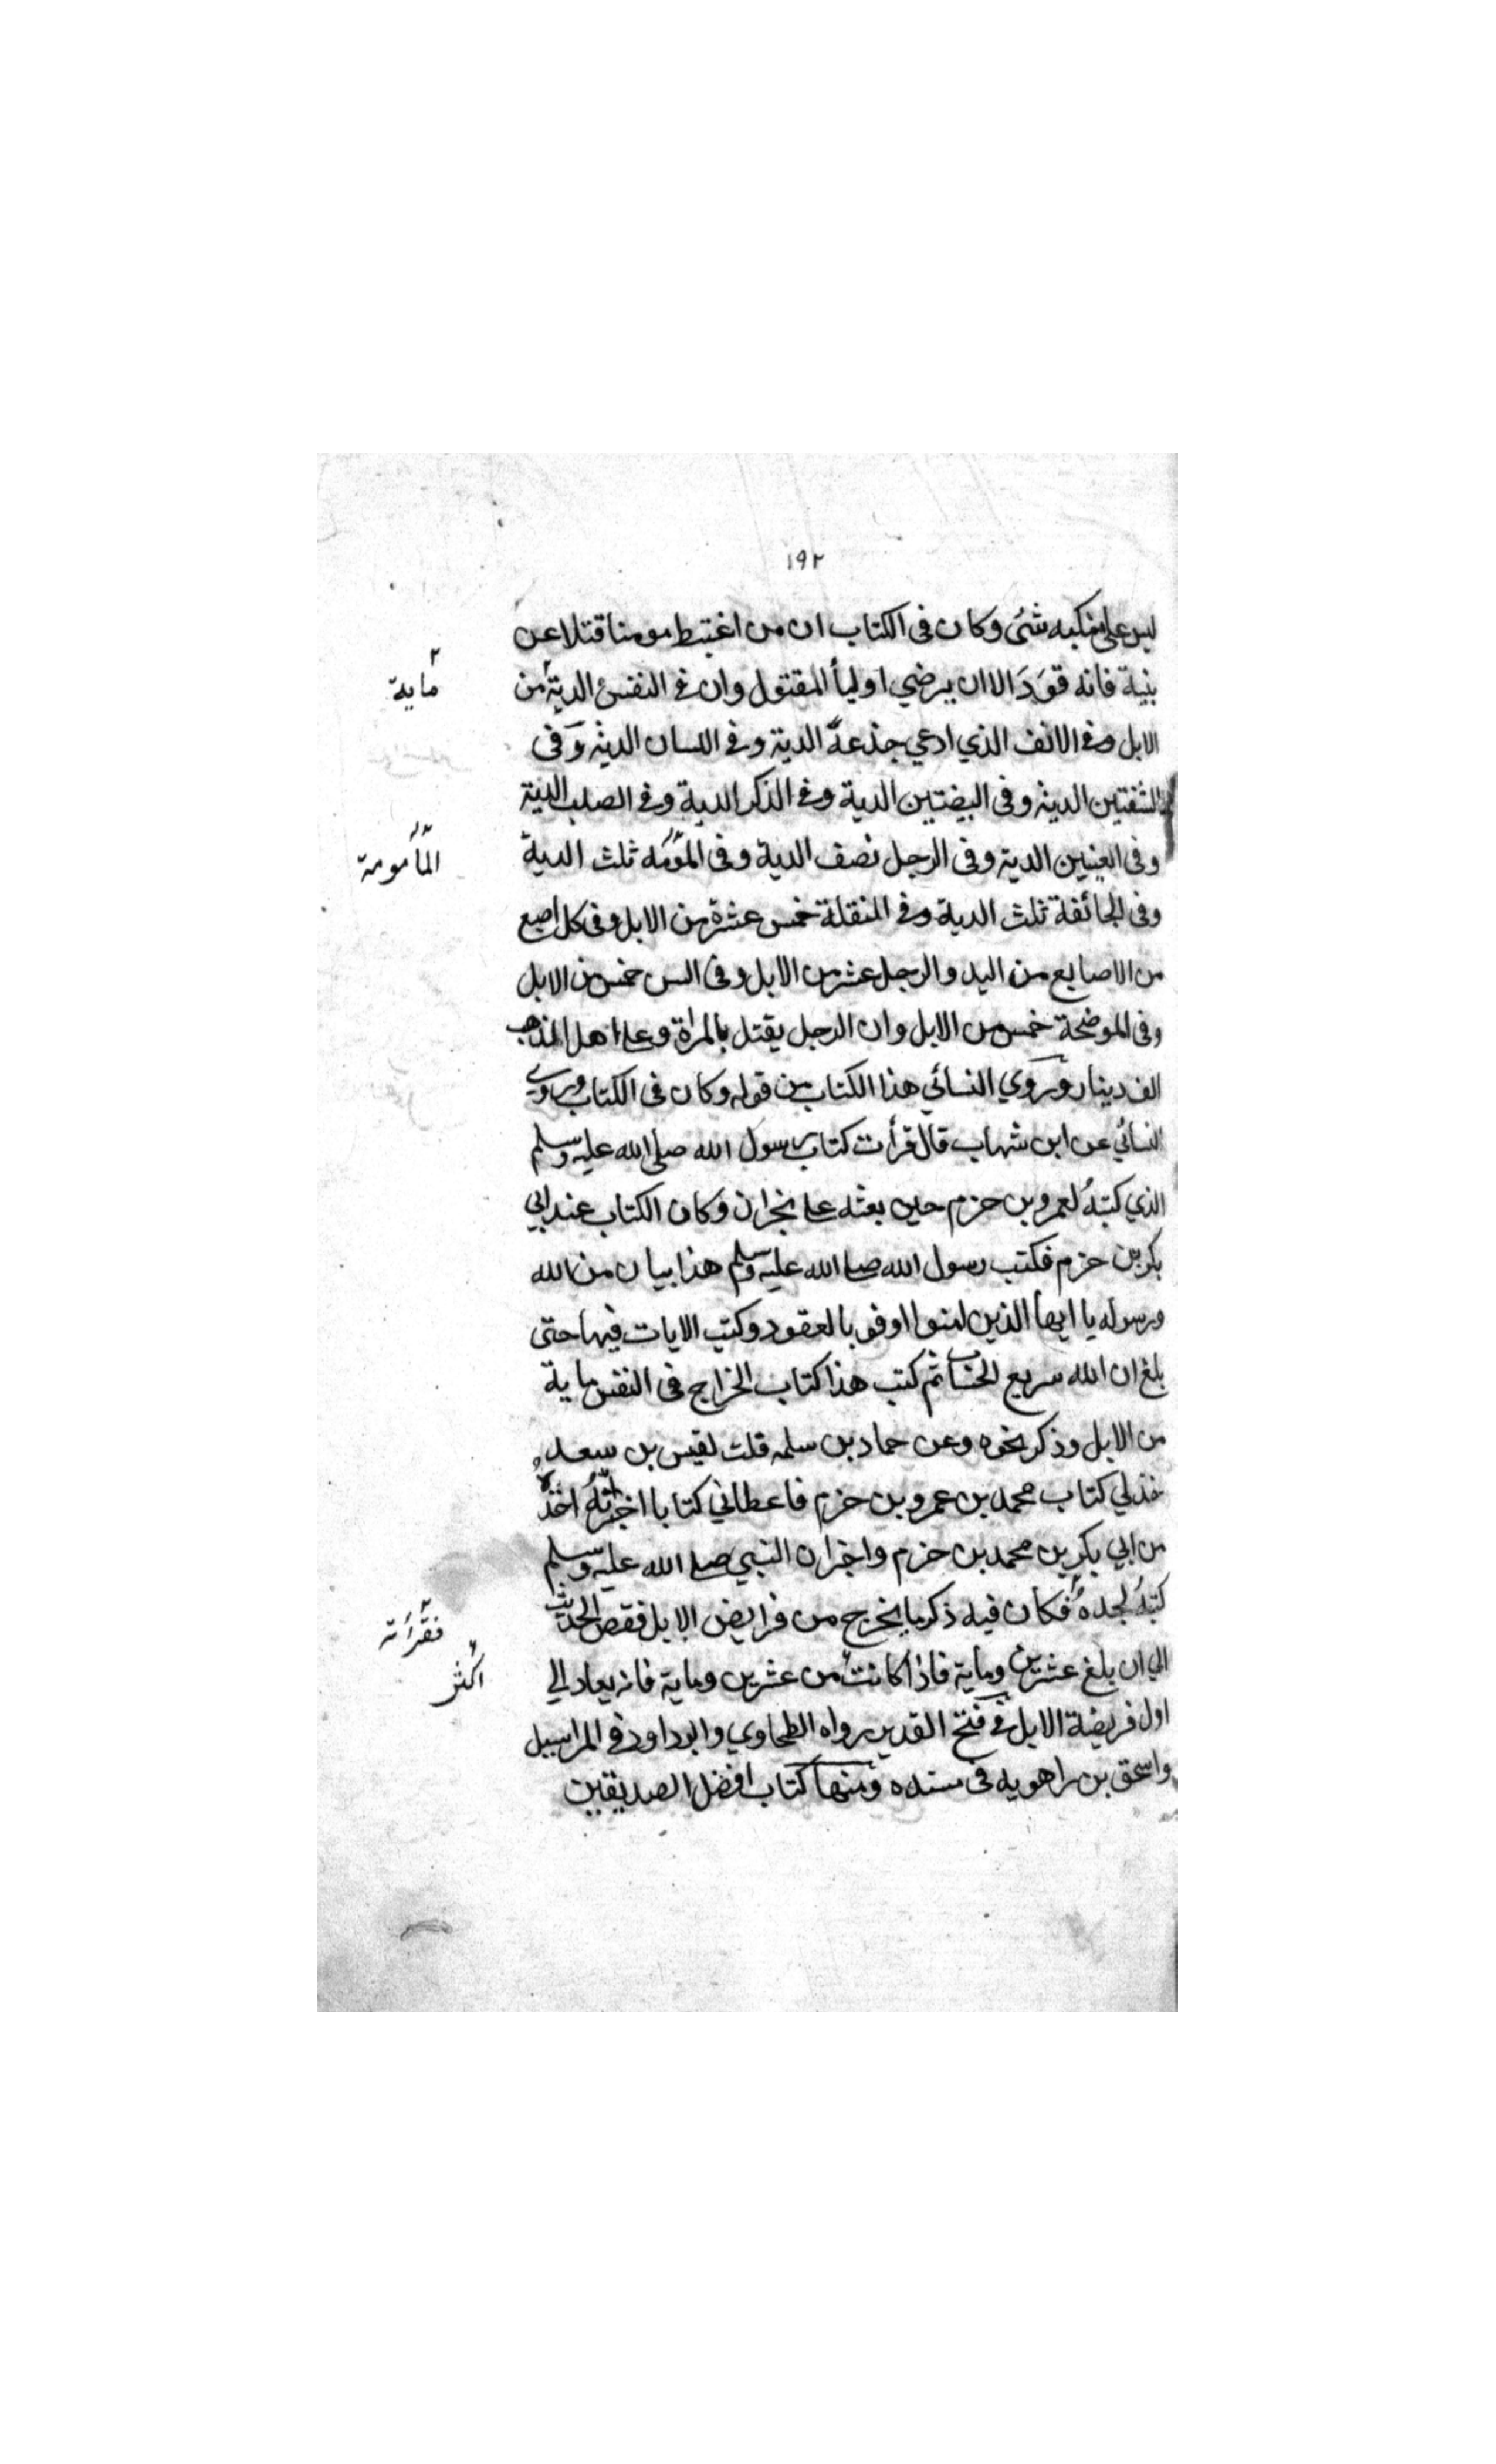 ١٩٢
ليس على منكبه شئ وكان فى الكتاب ان من اغتبط مومنا قتلا عن
بنية فانه قَوَدَ الا ان يرضي اوليأ المقتول وان في النفس الدية من
ماية
الابل وفي الانف الذي ادعي جذعة الدية وفي اللسان الدية وفى
الشفتين الدية وفى البيضتين الدية وفي الذكر الدية وفي الصلب الدية
وفى العينين الدية وفى الرجل نصف الدية وفى المؤمه ثلث الدية
المأمومة
وفى الجائفة ثلث الدية وفي المنقلة خمس عشرة من الابل وفى كل اصبع
من الاصابع من اليد والرجل عشر من الابل وفى السن خمس من الابل
وفى الموضحة خمس من الابل وان الرجل يقتل بالمراة وعلى اهل الذهب
الف دينار وروي النسائي هذا الكتاب من قوله وكان فى الكتاب وروي
النسائي عن ابن شهاب قال قرأت كتاب رسول الله صلى الله عليه وسلم
الذي كتبهُ لعمرو بن حزم حين بعثه على نجران وكان الكتاب عند ابي
بكر بن حزم فكتب رسول الله صلى الله عليه وسلم هذا بيان من الله
ورسوله يا ايها الذين امنوا اوفوا بالعقود وكتب الايات فيها حتى
بلغ ان الله سريع الحساب ثم كتب هذا كتاب الجراح فى النفس ماية
من الابل وذكر نحوه وعن حماد بن سلمه قلت لقيس بن سعد
خذ لي كتاب محمد بن عمرو بن حزم فاعطاني كتابا اخبر انّهُ اخذهُ
من ابي بكر بن محمد بن حزم واخبر ان النبي صلى الله عليه وسلم
كتبهُ لجدهُ فكان فيه ذكر ما يخرج من فرايض الابل فقص الحديث
فقرأته
الي ان بلغ عشرين وماية فاذا كانت من عشرين وماية فانه يعاد الي
اكثر
اول فريضة الابل في فتح القدير رواه الطحاوي وابو داود في المراسيل
واسحق بن راهويه فى مسنده ومنها كتاب افضل الصديقين